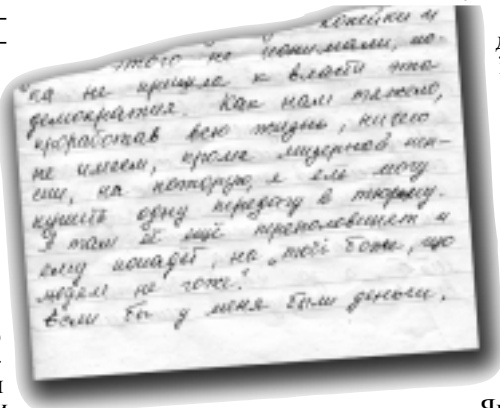 копейки и
этого не понимали, по-
ка не пришла к власти эта
демократия. Как нам тяжело,
проработав всю жизнь, ничего
не имеем, кроме мизерной пен-
сии, на которую я ель могу
купить одну передачу в тюрьму.
А там её ещё переполовинет и
ему попадёт, на „тобі боже, що
людям не гоже".
Если бы у меня были деньги,